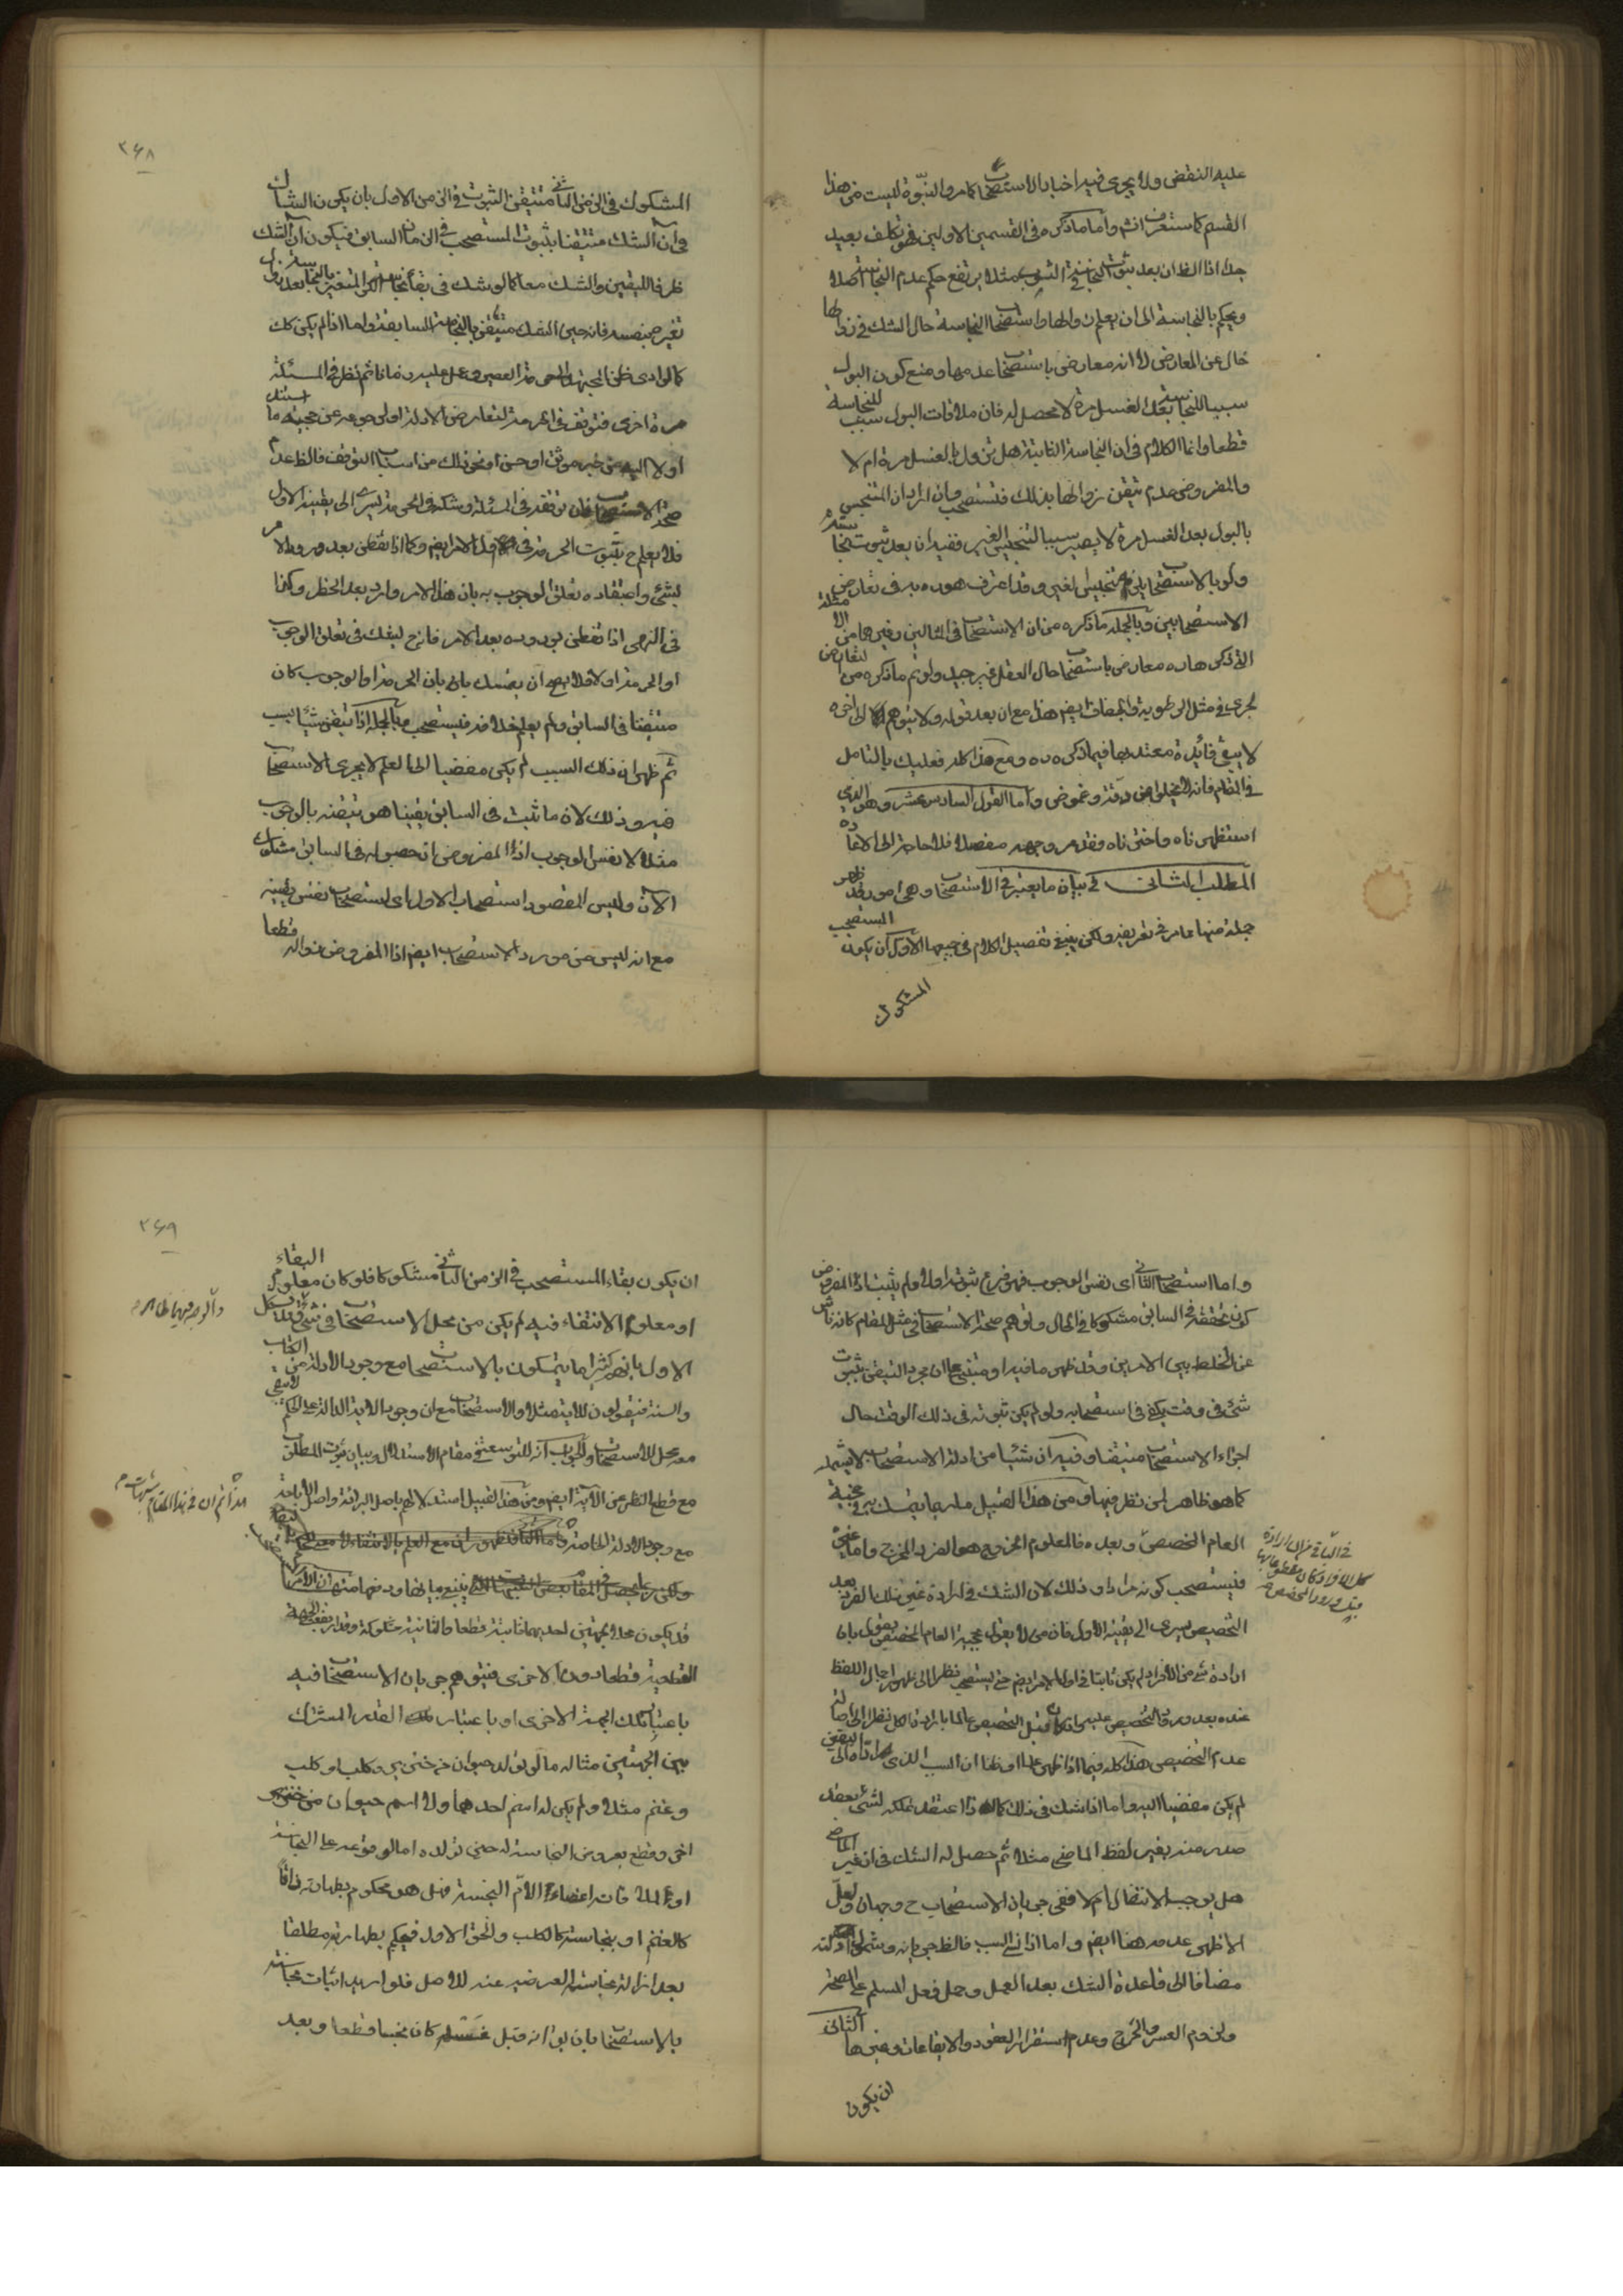 عليه النقض ولا يجرى فيه اخبار الاستصحاب كما مر والنبوة ليست من هذا
القسم كما ستعرف انش واما ما ذكره فى القسمين الاولين فهو تكلف بعيد
جدا اذا الظ ان بعد ثبوت النجاسة فى الثوب مثلا يرتفع حكم عدم النجاسة اصلا
ويحكم بالنجاسة الى ان يعلم زوالها واستصحاب النجاسة حال الشك فى زوالها
خال عن المعارض لا انه معارض باستصحاب عدمها ومنع كون البول
سببا للنجاسة بعد الغسل مرة لا محصل له فان ملاقات البول سبب للنجاسة
قطعا وانما الكلام فى ان النجاسة الثابتة هل تزول بالغسل مرة ام لا
والمفروض عدم تيقن زوالها بذلك فتستصحب وان اراد ان المتنجس
بالبول بعد الغسل مرة لا يصير سببا لتنجيس الغير ففيه ان بعد ثبوت نجاسته
ولو بالاستصحاب يلزمه تنجيس الغير وقد اعترف هو ره به فى تعارض
الاستصحابين وبالجملة ما ذكره من ان الاستصحاب فى المثالين وغيرهما من الامثلة
التى ذكرها ره معارض باستصحاب حال العقل غير جيد ولو تم ما ذكره من التعارض
لجرى فى مثل الرطوبة والجفاف ايض هذا مع ان بعد قوله ولا يتوهم الى اخره
لا يبقى فائدة معتد بها فيما ذكره ره ومع هذا كله فعليك بالتامل
فى المقام فانه لا يخلو عن دقة وغموض واما القول السادس عشر وهو الذى
استظهرناه واخترناه فقد مر وجهه مفصلا فلا حاجة الى الاعادة
المطلب الثانى فى بيان ما يعتبر فى الاستصحاب وهى امور قد ظهر
جملة منها مما مر فى تعريفه ولكن ينبغى تفصيل الكلام فى جميعها الاول ان يكون المستصحب
المشكوك
٣٦٨
المشكوك فى الزمن الثانى متيقن الثبوت فى الزمن الاول بان يكون الشاك
فى آن الشك متيقنا بثبوت المستصحب فى الزمان السابق فيكون آن الشك
ظرفا لليقين والشك معا كما لو شك فى بقاء نجاسة الكر المتغير بالنجاسة بعد زوال
تغيره بنفسه فانه حين الشك متيقن بالنجاسة السابقة واما اذا لم يكن كك
كما لو ادى ظن المجتهد الى حرمة العصير وعمل عليه زمانا ثم نظر فى المسئلة
مرة اخرى فتوقف فى الحرمة لتعارض الادلة او لرجوعه عن حجية ما استند
اولا اليه من خبر موثق او حسن او نحو ذلك من اسباب التوقف فالظ عدم
صحة الاستصحاب فان توقفه فى المسئلة وشكه فى الحرمة يسرى الى يقينه الاول
فلا يعلم ح بثبوت الحرمة فى اول الامر ايض وكما اذا تفطن بعد ورود الامر
بشئ واعتقاده تعلق الوجوب به بان هذا الامر وارد بعد الحظر وكذا
فى النهى اذا تفطن بوروده بعد الامر فانه ح يشك فى تعلق الوجوب
او الحرمة اولا فلا يصح ان يتمسك بان الحرمة او الوجوب كان
متيقنا فى السابق ولم يعلم خلافه فيستصحب وبالجملة اذا تيقن شيئا بسبب
ثم ظهر ان ذلك السبب لم يكن مفضيا الى العلم لا يجرى الاستصحاب
فيه وذلك لان ما ثبت فى السابق يقينا هو تيقنه بالوجوب
مثلا لا نفس الوجوب اذ المفروض ان حصوله فى السابق مشكوك
الآن وليس المقصود استصحاب الاول اى استصحاب نفس يقينه
مع انه ليس من مورد الاستصحاب ايض اذا المفروض زواله قطعا
واما استصحاب الثانى اى نفس الوجوب فهو فرع ثبوته اولا ولم يثبت اذ المفروض
كون تحققه فى السابق مشكوكا فى الحال وتوهم صحة الاستصحاب فى مثل المقام كانه ناش
عن الخلط بين الامرين وقد ظهر ما فيه او مبتنى على ان مجرد التيقن بثبوت
شئ فى وقت يكفى فى استصحابه ولو لم يكن ثبوته فى ذلك الوقت حال
اجراء الاستصحاب متيقنا وفيه ان شيئا من ادلة الاستصحاب لا يشمله
كما هو ظاهر لمن نظر فيها ومن هذا القبيل ما ربما يتمسك به فى حجية
العام المخصص وبعده فالمعلوم الخروج هو الفرد المخرج واما غيره
فيستصحب كونه مرادا وذلك لان الشك فى ارادة غير ذلك الفرد بعد
التخصيص يسرى الى يقينه الاول فان من لا يقول بحجية العام المخصص يقول بان
ارادة شئ من الافراد لم يكن ثابتا فى اول الامر ايض حتى يستصحب نظرا الى ظهور اجمال اللفظ
عنده بعد ورود التخصيص عليه وان كان قبل التخصيص عالما بارادة الكل نظرا الى اصالة
عدم التخصيص هذا كله فيما اذا ظهر علما او ظنا ان السبب الذى اداه الى اليقين
لم يكن مفضيا اليه واما اذا شك فى ذلك كما اذا اعتقد تملكه لشئ بعقد
صدر منه بغير لفظ الماضى مثلا ثم حصل له الشك فى ان غير الماضى
هل يوجب الانتقال ام لا ففى جريان الاستصحاب ح وجهان ولعل
الاظهر عدمه هنا ايض واما اذا نسى السبب فالظ جريانه وشمول ادلته
مضافا الى قاعدة الشك بعد العمل وحمل فعل المسلم على الصحة
ولزوم العسر والحرج وعدم استقرار العقود والايقاعات وغيرها الثانى
ان يكون
٣٦٩
ان يكون بقاء المستصحب فى الزمن الثانى مشكوكا فلو كان معلوم البقاء
او معلوم الانتفاء فيه لم يكن من محل الاستصحاب فى شئ
الاول بانهم كثيرا ما يتمسكون بالاستصحاب مع وجود الادلة من الكتاب
والسنة فيقولون للآية مثلا والاستصحاب مع ان وجود الآية الدالة على الحكم لا يبقى
معه محل للاستصحاب والجواب انه للتوسعة فى مقام الاستدلال وبيان ثبوت المطلق
مع قطع النظر عن الآية ايض ومن هذا القبيل استدلالهم باصل البرائة واصل الاباحة
مع وجود الادلة الخاصة
قد يكون محلا لجهتين احديهما ثابتة قطعا والثانية مشكوكة وقد ارتفع الجهة
القطعية قطعا دون الاخرى فيتوهم جريان الاستصحاب فيه
باعتبار تلك الجهة الاخرى او باعتبار القدر المشترك
بين الجهتين مثاله ما لو تولد حيوان من خنزير وكلب او كلب
وغنم مثلا ولم يكن له اسم احدهما ولا اسم حيوان
اخر وقطع بعروض النجاسة له حين تولده اما لوقوعه على النجاسة
او لملاقات اعضاء الام النجسة فهل هو محكوم بطهارته ذاتا
كالغنم او بنجاسته كالكلب والحق الاول فيحكم بطهارته مطلقا
بعد ازالة نجاسة العرضية عنه للاصل فلو اريد اثبات نجاسته
بالاستصحاب بان يق انه قبل غسله كان نجسا قطعا وبعد